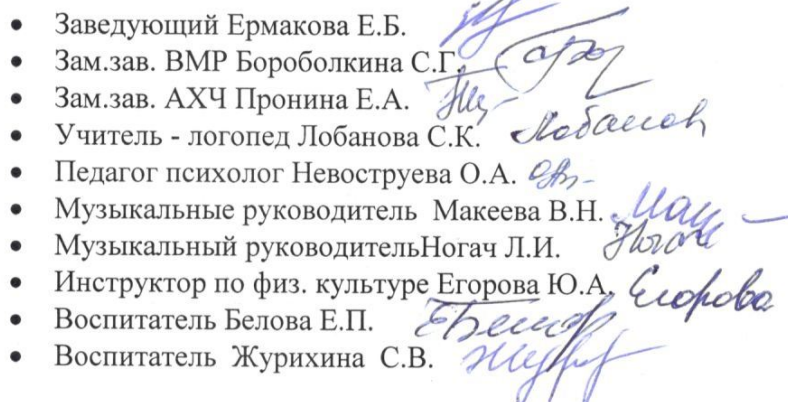 • Заведующий Ермакова Е.Б.
• Зам.зав. ВМР Бороболкина С.Г.
• Зам.зав. АХЧ Пронина Е.А.
• Учитель - логопед Лобанова С.К. Лобанов
• Педагог психолог Невоструева О.А.
• Музыкальные руководитель Макеева В.Н.
• Музыкальный руководительНогач Л.И. Ногач
• Инструктор по физ. культуре Егорова Ю.А. Егорова
• Воспитатель Белова Е.П.
• Воспитатель Журихина С.В.